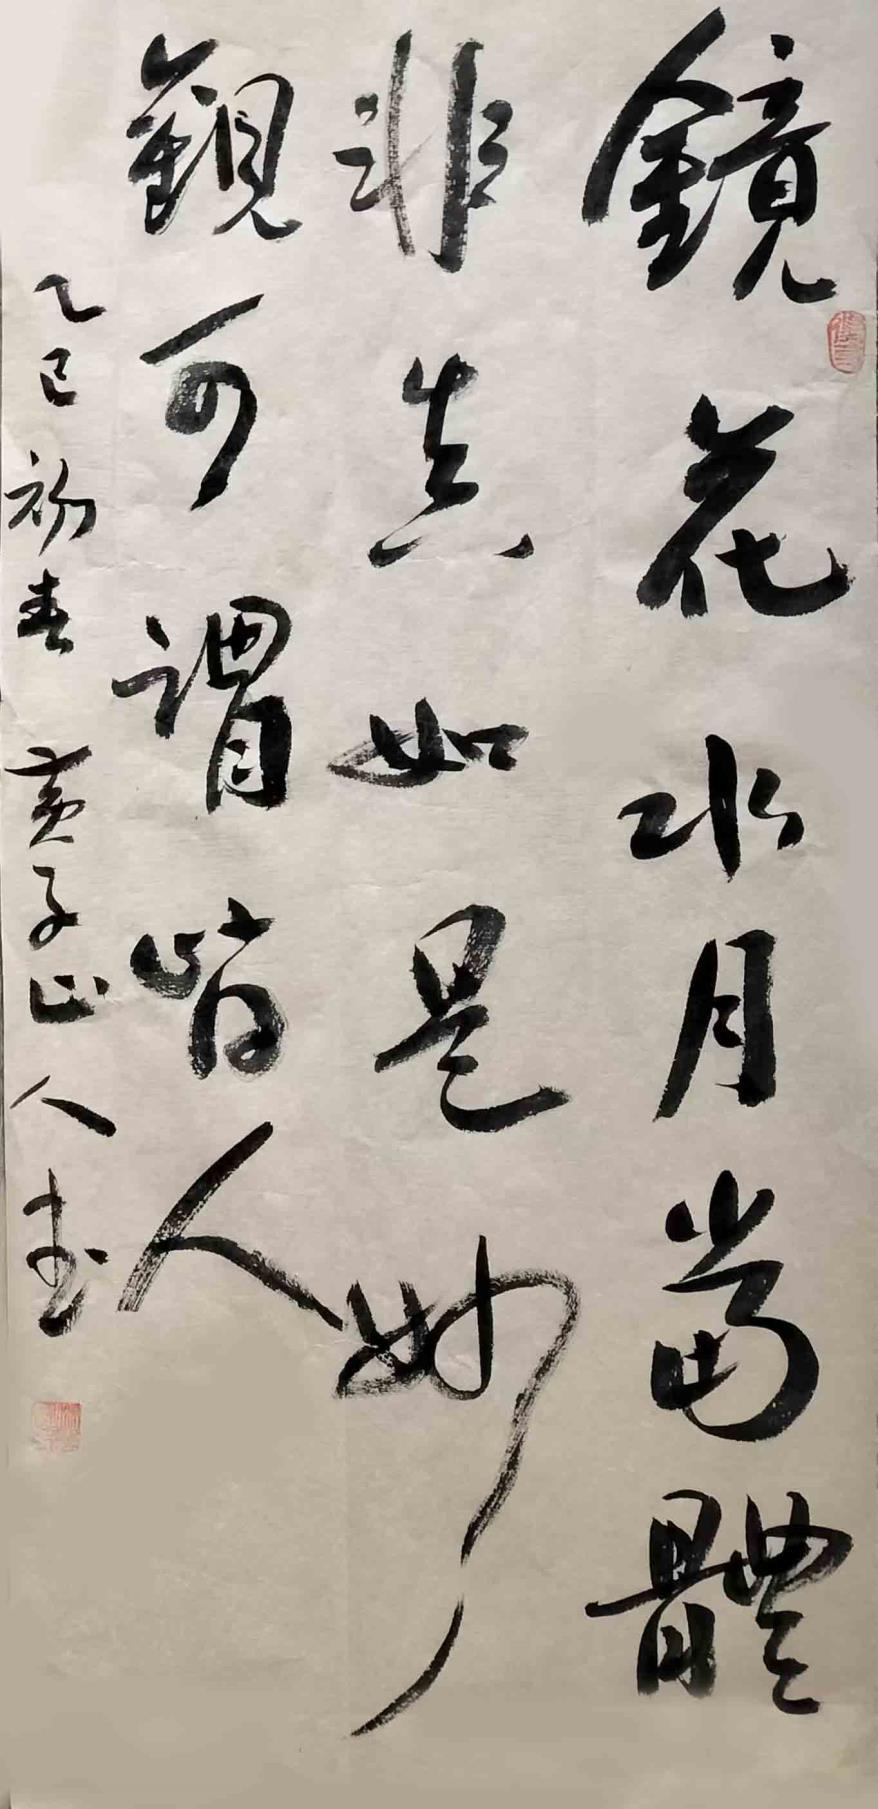 鏡花水月當體
非真如是妙
觀可謂智人
乙巳初春 黃子山人書